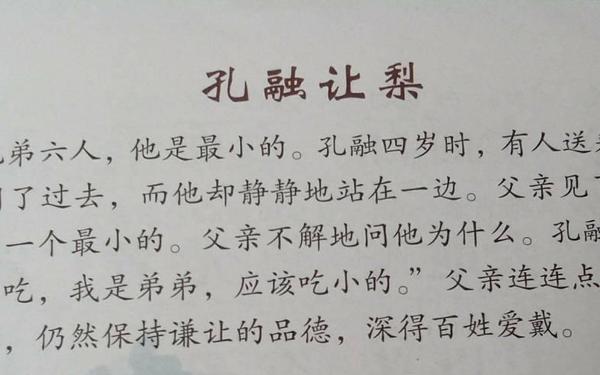 孔融让梨
弟六人，他是最小的。孔融四岁时，有人送
了过去，而他却静静地站在一边。父亲见
一个最小的。父亲不解地问他为什么。孔融
吃，我是弟弟，应该吃小的。”父亲连连点
，仍然保持谦让的品德，深得百姓爱戴。